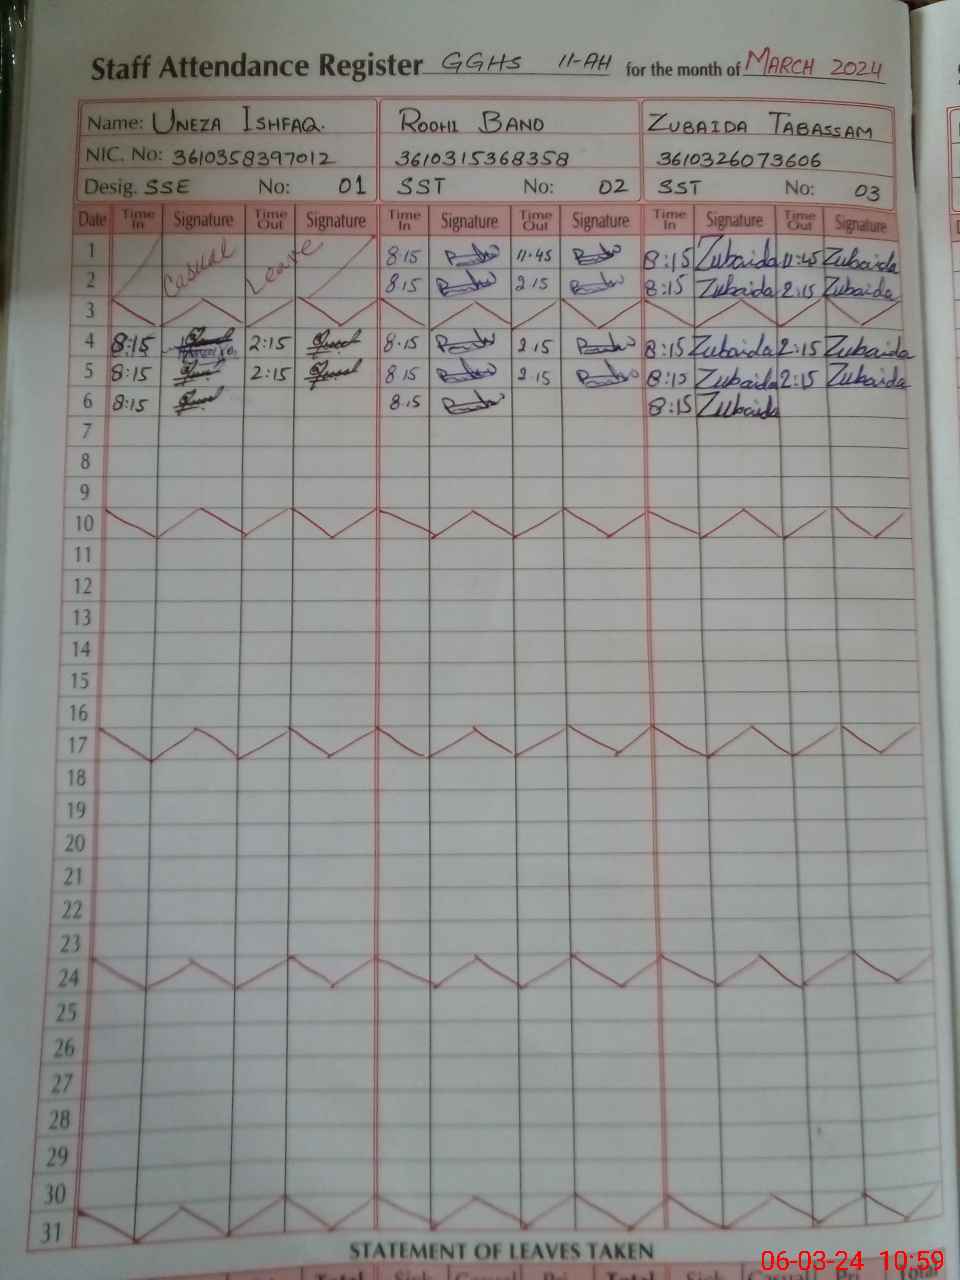 Staff Attendance Register GGHS 11-AH for the month of MARCH 2024
Name: UNEZA ISHFAQ. ROOHI BANO ZUBAIDA TABASSAM
NIC. No: 3610358397012 3610315368358 3610326073606
Desig. SSE No: 01 SST No: 02 SST No: 03
Date Time In Signature Time Out Signature Time In Signature Time Out Signature Time In Signature Time Out Signature
1 Casual Leave 8:15 11:45 8:15 Zubaida 11:45 Zubaida
2 8:15 2:15 8:15 Zubaida 2:15 Zubaida
3
4 8:15 2:15 8:15 2:15 8:15 Zubaida 2:15 Zubaida
5 8:15 2:15 8:15 2:15 8:15 Zubaida 2:15 Zubaida
6 8:15 8:15 8:15 Zubaida
7
8
9
10
11
12
13
14
15
16
17
18
19
20
21
22
23
24
25
26
27
28
29
30
31
STATEMENT OF LEAVES TAKEN
06-03-24 10:59